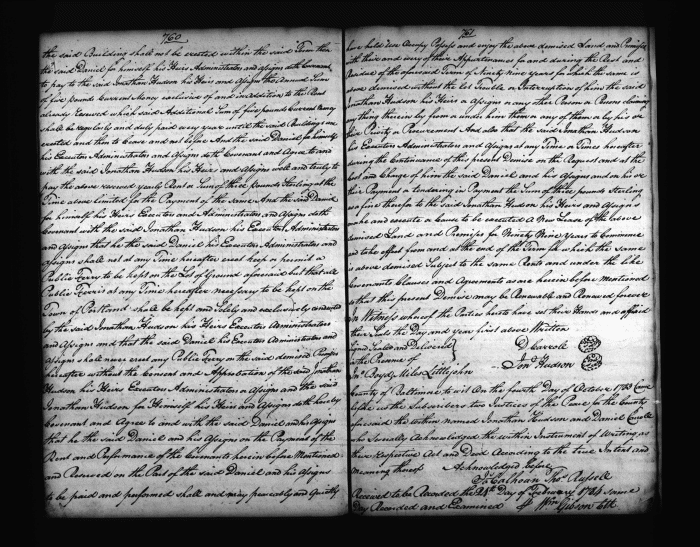 760
the said Building shall not be erected within the said Term then
the said Daniel for himself his Heirs Administrators and Assigns doth Covenant
to pay to the said Jonathan Hudson his Heirs and Assigns the annual Sum
of five pounds Current Money exclusive of and in addition to the Rent
already reserved which said Additional Sum of five pounds Current Money
shall be regularly and duly paid every year until the said Buildings are
erected and then to Cease and not before And the said Daniel for himself
his Executors Administrators and Assigns doth Covenant and Agree to and
with the said Jonathan Hudson his Heirs and Assigns well and truly to
pay the above reserved yearly Rent or Sum of three pounds Sterling at the
Time above limited for the Payment of the same And the said Daniel
for himself his Heirs Executors and Administrators and Assigns doth
Covenant with the said Jonathan Hudson his Executors Administrators
and Assigns that he the said Daniel his Executors Administrators and
Assigns shall not at any Time hereafter erect keep or permit a
Public Ferry to be kept on the Lot of Ground aforesaid but that all
Public Ferries at any Time hereafter necessary to be kept on the
Town of Portland shall be kept and Solely and exclusively
by the said Jonathan Hudson his Heirs Executors Administrators
and Assigns and that the said Daniel his Executors Administrators and
Assigns shall never erect any Public Ferry on the said demised Premises
hereafter without the Consent and Approbation of the said Jonathan
Hudson his Heirs Executors Administrators or Assigns and the said
Jonathan Hudson for Himself his Heirs and Assigns doth hereby
Covenant and Agree to and with the said Daniel and his Assigns
that he the said Daniel and his Assigns on the Payment of the
Rent and Performance of the Covenants herein before Mentioned
and Reserved on the Part of the said Daniel and his Assigns
to be paid and performed shall and may peaceably and Quietly
761
have hold use Occupy Possess and enjoy the above demised Land and Premises
with their and every of their Appurtenances for and during the Rest and
Residue of the aforesaid Term of Ninety Nine years for which the same is
above demised without the Let Trouble or Interruption of him the said
Jonathan Hudson his Heirs or Assigns or any other Person or Persons claiming
any thing therein by from or under him them or any of them or by his or
their Privity or Procurement And also that the said Jonathan Hudson
his Executors Administrators and Assigns at any Time or Times hereafter
during the Continuance of this present Demise on the Request and at the
Cost and Charge of him the said Daniel and his Assigns and on his or
their Payment or tendering in Payment the Sum of three pounds Sterling
first therefor to the said Jonathan Hudson his Heirs and Assigns
make and execute or cause to be executed A New Lease of the above
demised Land and Premises for Ninety Nine Years to Commence
and take effect from and at the end of the Term for which the same
is above demised Subject to the same Rents and under the like
Covenants Clauses and Agreements as are herein before Mentioned
so that this present Demise may be Renewable and Renewed forever
In Witness whereof the Parties hereto have set their Hands and affixed
their Seals the Day and year first above Written
Signed Sealed and Delivered
in the Presence of
D Carroll
Jno Boyd, Miles Littlejohn
Jona Hudson
County of Baltimore to wit On the fourth Day of October 1783 Came
before us the Subscribers two Justices of the Peace for the County
aforesaid the within named Jonathan Hudson and Daniel Carroll
who Severally Acknowledged the within Instrument of Writing as
their Respective Act and Deed According to the true Intent and
Meaning thereof
Acknowledged before
Js Calhoun Thos Russell
Received to be Recorded the 24th Day of February 1784 same
Day Recorded and Examined
Wm Gibson Clk